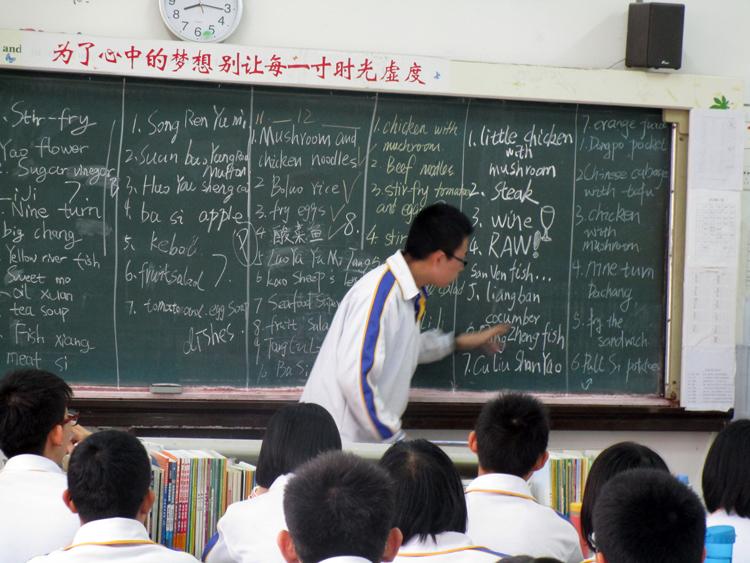 and
为了心中的梦想别让每一寸时光虚度
Stir-fry
Yao flower
Sugar vinegar
JiJi 7.
Nine turn
big chang
Yellow river fish
Sweet mo
oil xuan
tea soup
Fish xiang
meat si
1. Song Ren Yu mi
2. Suan bao Yang Rou
mutton
3. Huo You sheng cai
4. ba si apple
5. kebob
6. fruit salad 7
7. tomato and egg soup
dishes:
11. 12
1. Mushroom and
chicken noodles
2 Boluo rice
3. fry eggs
4 酸菜鱼
8.
5. LuoTa Yu
6 Kao sheep's
7 Seafood
8 fruit Sala
Ba Si
1. chicken with
muchroom.
2. Beef nodles
3. stir-fry tomatoe
and egg
4. stir
1. little chicken
with
mushroom
2. Steak
3. wine
4. RAW!
San Ven fish...
5. liangban
cocumber
Zheng fish
7. Cu Liu Shan Yao
7. orange juice
1. Dongpo pocket
2. Chinese cabbage
with tofu
3. chicken
with
mushroom.
4. Nine turn
Dachang.
5. fry the
sandwich
6 Pall Si potatoes